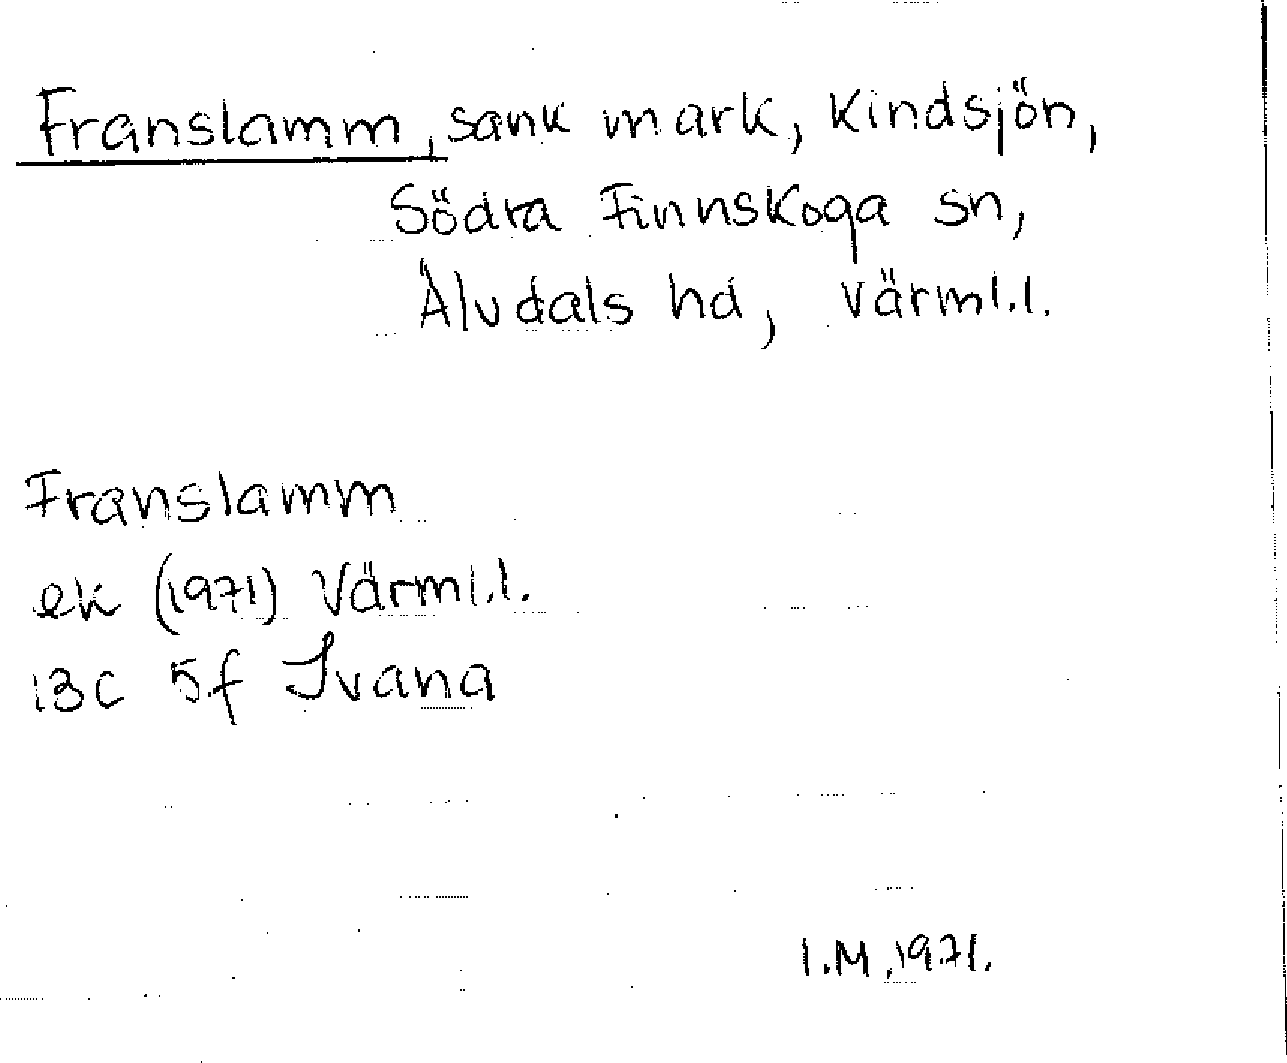 Franslamm, sank mark, Kindsjön,
Södra Finnskoga sn,
Älvdals hd, Värml.l.
Franslamm
ek (1971) Värml.l.
13C 5f Ivana
I.M. 1971.